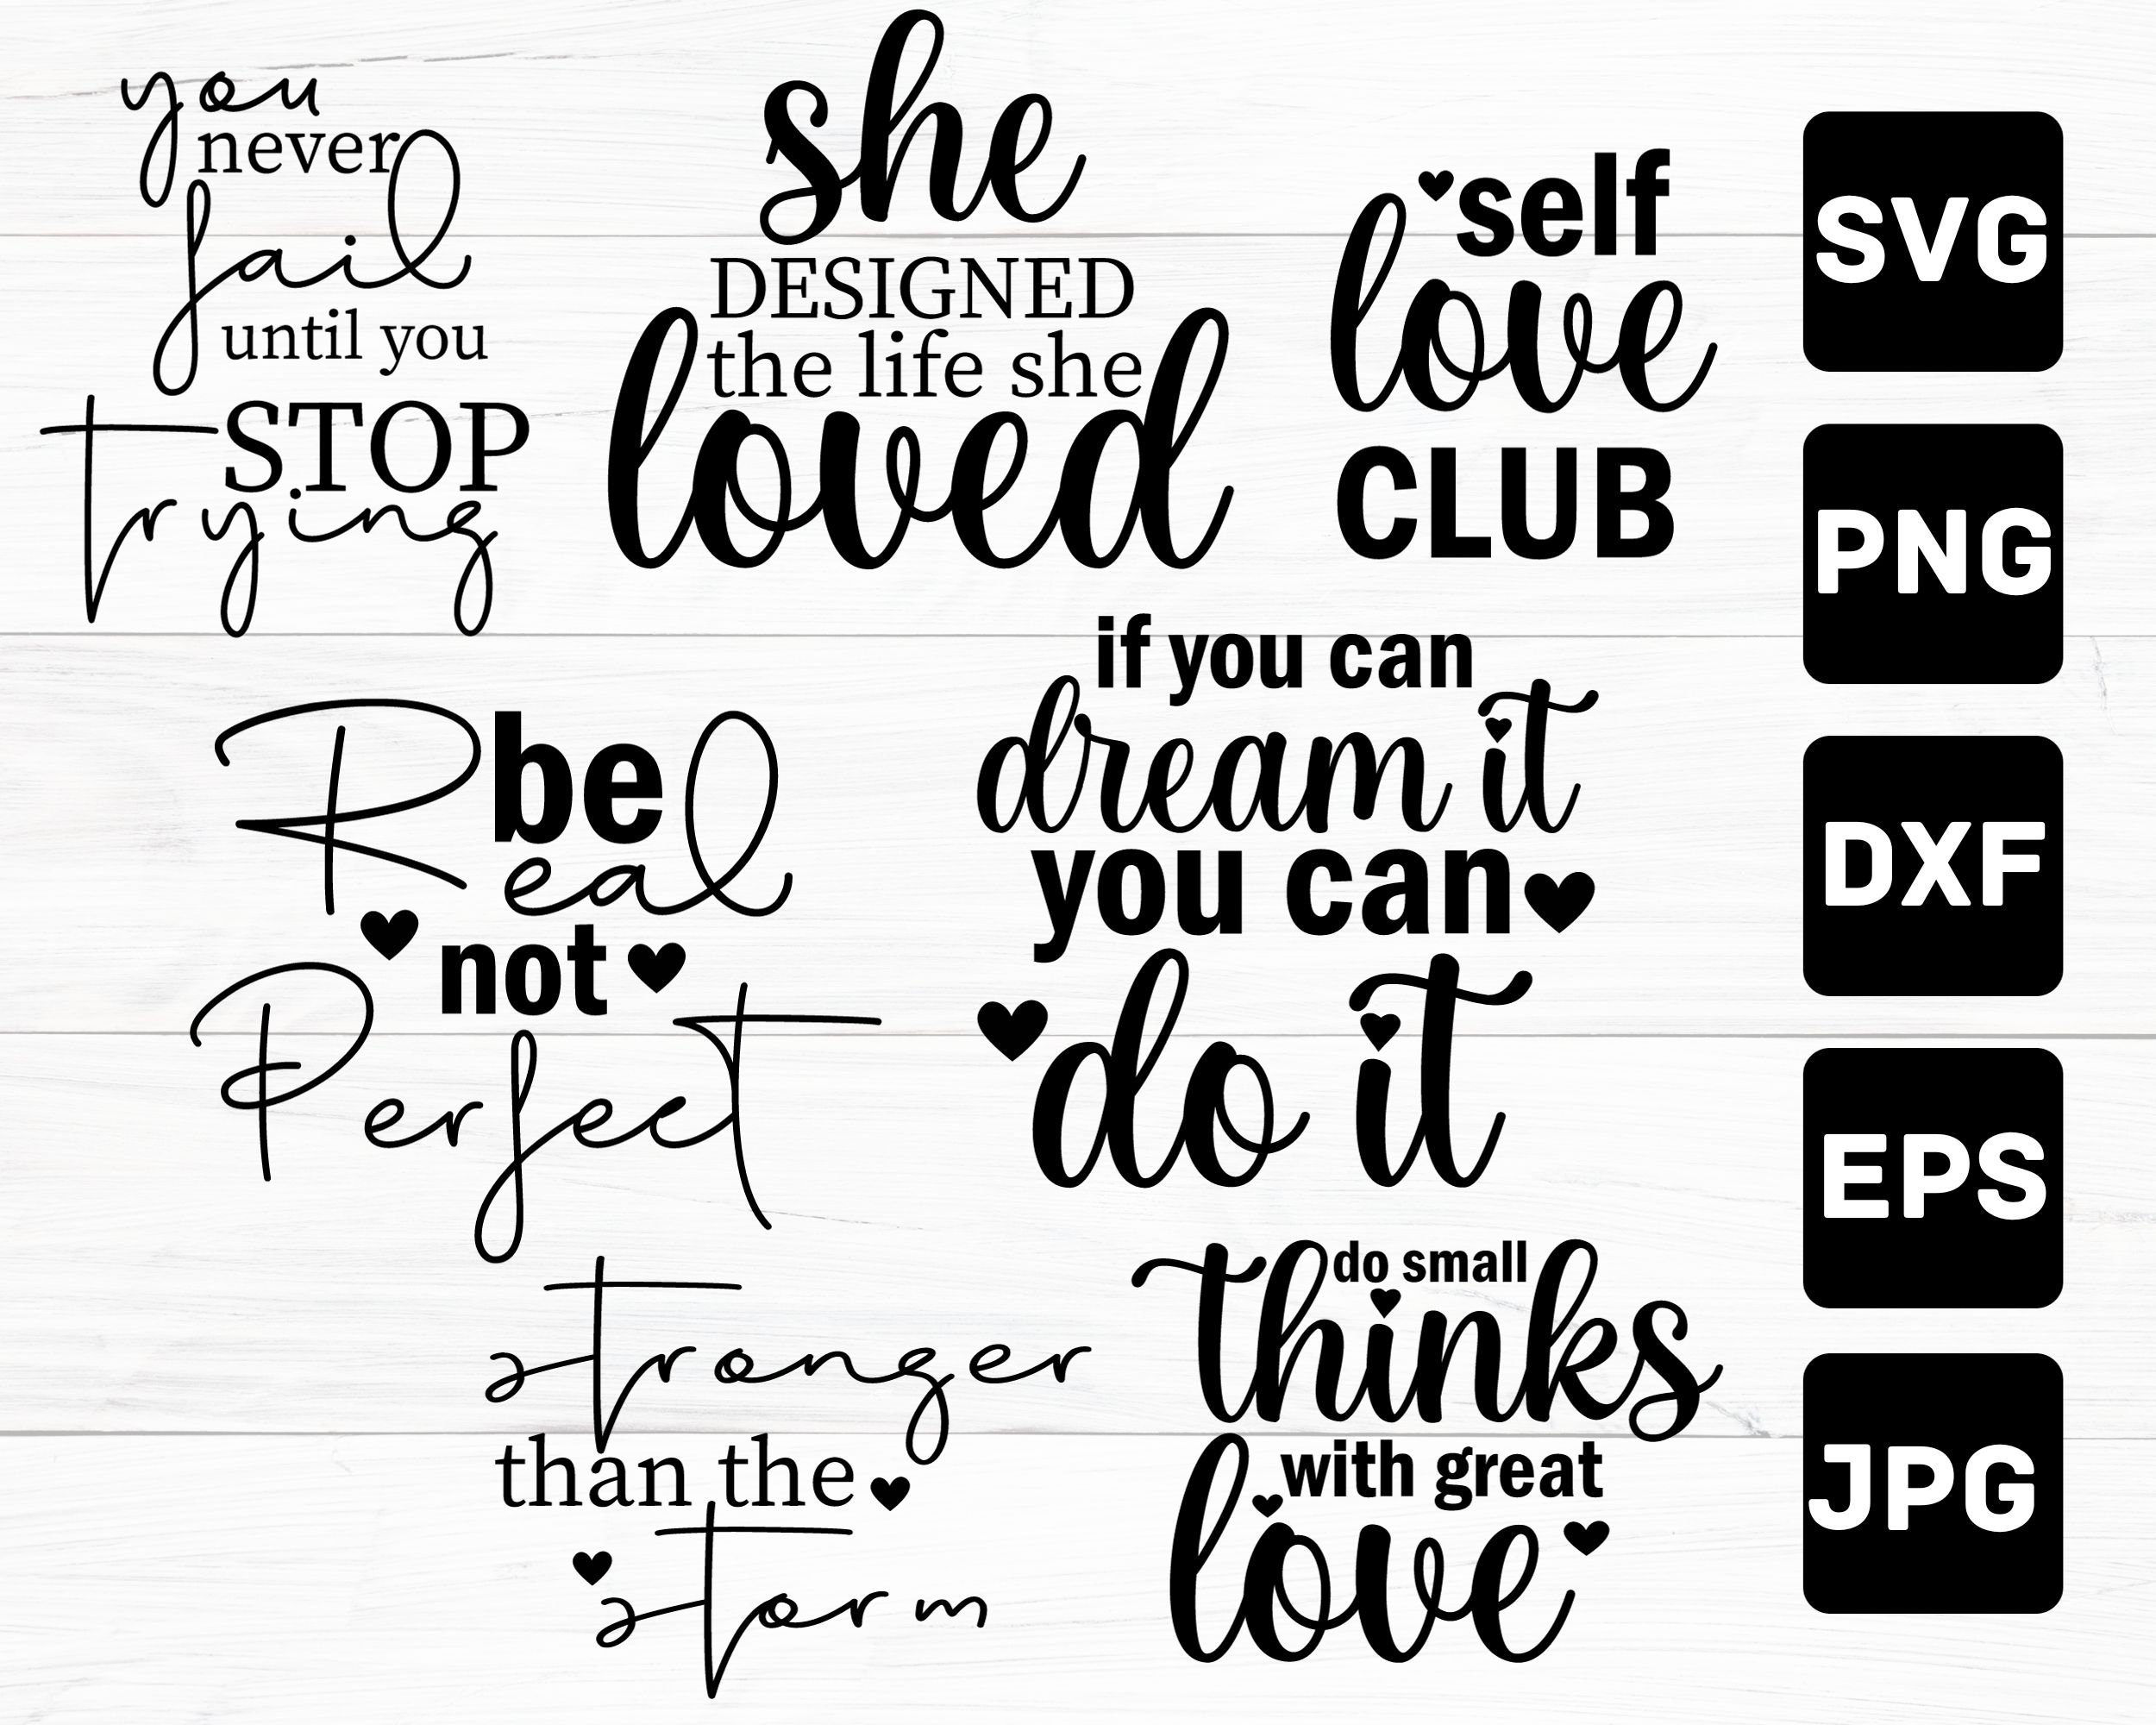 you
never
fail
until you
STOP
trying
she
DESIGNED
the life she
loved
self
love
CLUB
be
Real
not
Perfect
if you can
dream it
you can
do it
stronger
than the
storm
do small
thinks
with great
love
SVG
PNG
DXF
EPS
JPG